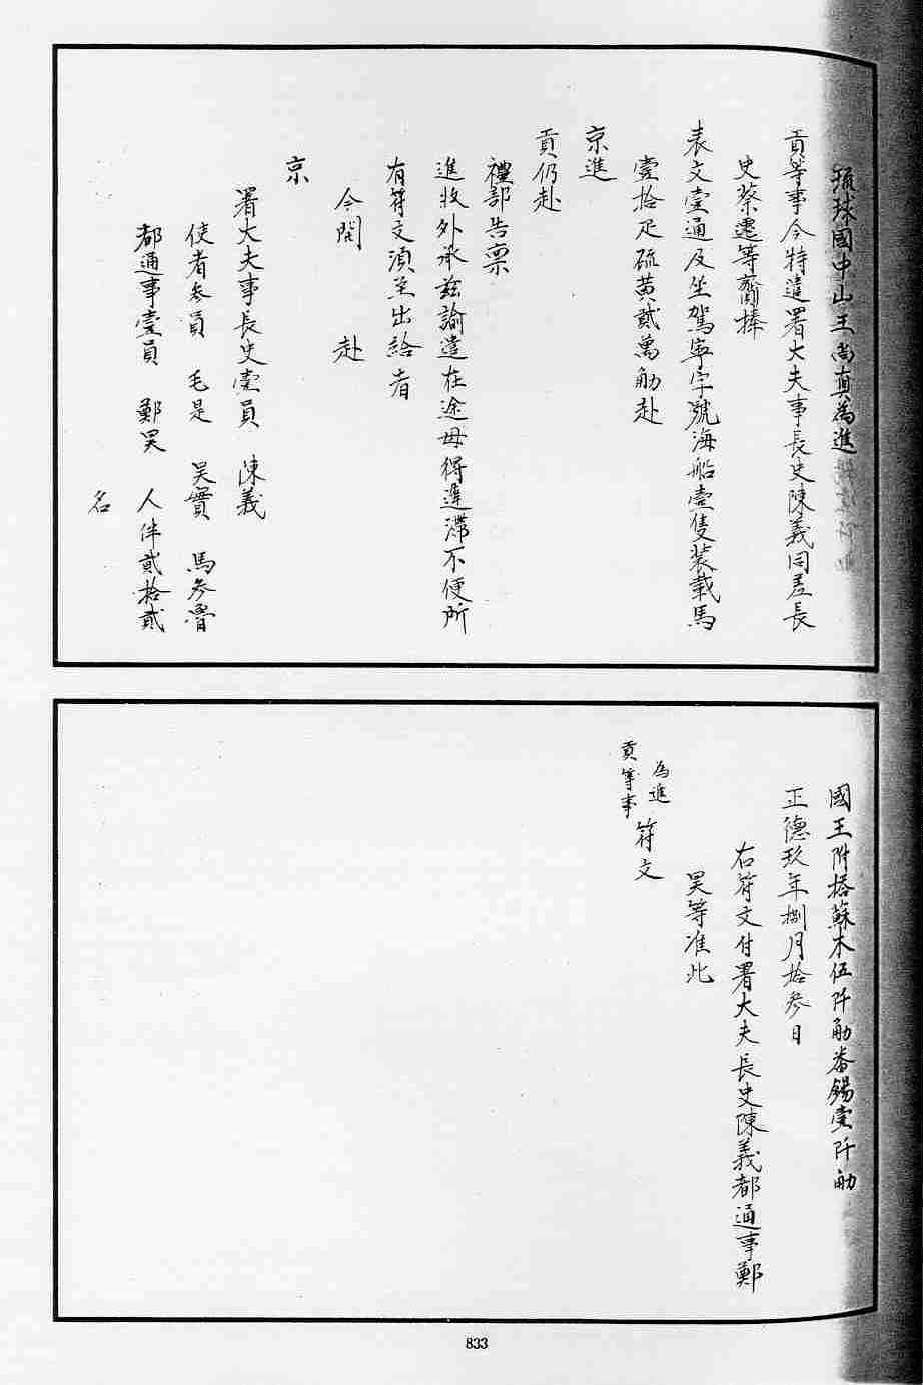 琉球國中山王尚真為進
貢等事今特遣署大夫事長史陳義同差長
史蔡遷等齎捧
表文壹通及坐駕寧字號海船壹隻裝載馬
壹拾疋硫黃貳萬觔赴
京進
貢仍赴
禮部告稟
進收外承茲諭遣在途毋得遲滯不便所
有符文須至出給者
今開　赴
京
署大夫事長史壹員　陳義
使者參員　毛是　吴實　馬參魯
都通事壹員　鄭昊　人伴貳拾貳
名
國王附搭蘇木伍阡觔番錫壹阡觔
正德玖年捌月拾參日
右符文付署大夫長史陳義都通事鄭
昊等准此
為進
貢等事
符文
833